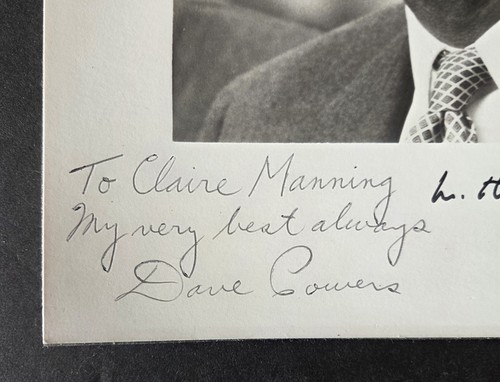 To Claire Manning
My very best always
Dave Cowens
L. H